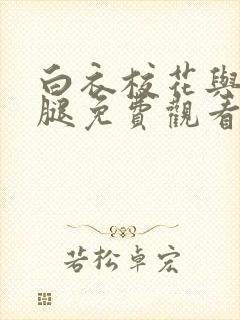 白衣校花與
腿免費觀看
若松卓宏